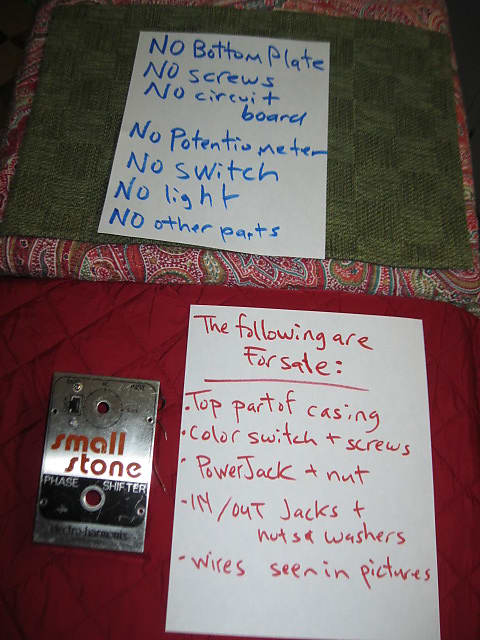 NO Bottom Plate
NO screws
NO circuit
board
NO Potentiometer
NO switch
NO light
NO other parts
The following are
For sale:
• Top part of casing
• Color switch + screws
• Power Jack + nut
• IN/OUT Jacks +
nuts & washers
• wires seen in pictures
small
stone
PHASE SHIFTER
electro-harmonix